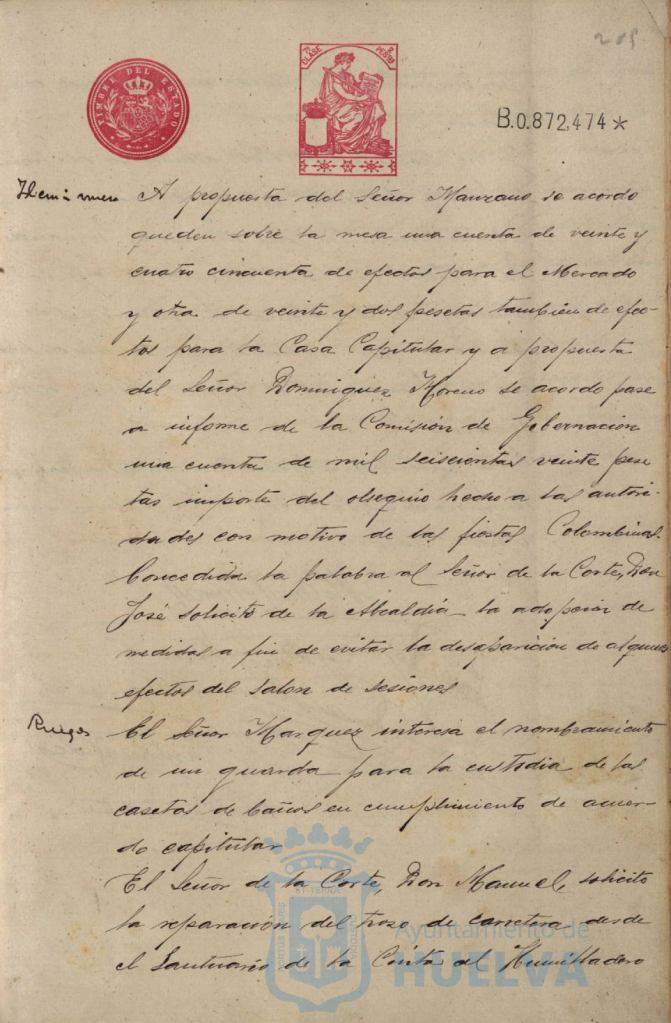 205
TIMBRE DEL ESTADO
CLASE PESETAS
B.0.872,474 *
A propuesta del Señor Manzano se acordo
queden sobre la mesa una cuenta de veinte y
cuatro cincuenta de efectos para el Mercado
y otra de veinte y dos pesetas tambien de efec-
tos para la Casa Capitular y a propuesta
del Señor Dominguez Moreno se acordo pase
a informe de la Comisión de Gobernacion
una cuenta de mil seiscientas veinte pese
tas importe del obsequio hecho a las autori-
dades con motivo de las fiestas Colombinas.
Concedida la palabra al Señor de la Corte, Don
José solicitó de la Alcaldía la adopción de
medidas a fin de evitar la desaparición de algunos
efectos del salon de sesiones
Ruegos
El Señor Marquez interesa el nombramiento
de un guarda para la custodia de las
casetas de baños en cumplimiento de acuer-
do capitular
El Señor de la Corte, Don Manuel, solicito
la reparación del trozo de carretera desde
el Santuario de la Cinta al Humilladero
Ayuntamiento de
HUELVA